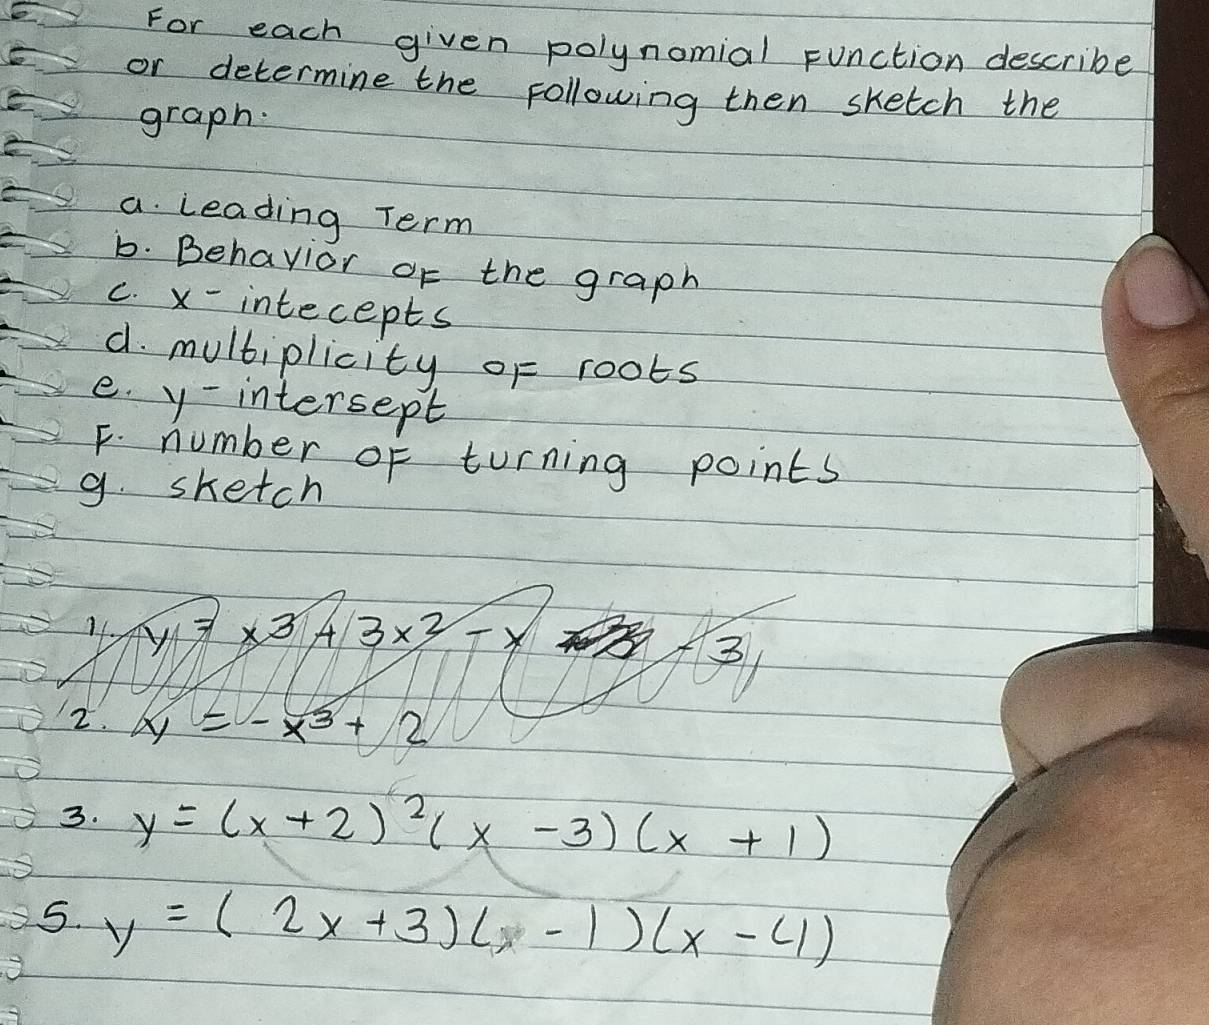 For each given polynomial Function describe
or determine the Following then sketch the
graph.
a. Leading Term
b. Behavior OF the graph
c. x-intecepts
d. multiplicity OF roots
e. y-intersept
F. number OF turning points
g. sketch
1. y = x³ + 3x² - x - 3
2. y = -x³ + 2
3. y = (x + 2)² (x - 3) (x + 1)
5. y = (2x + 3) (x - 1) (x - 4)